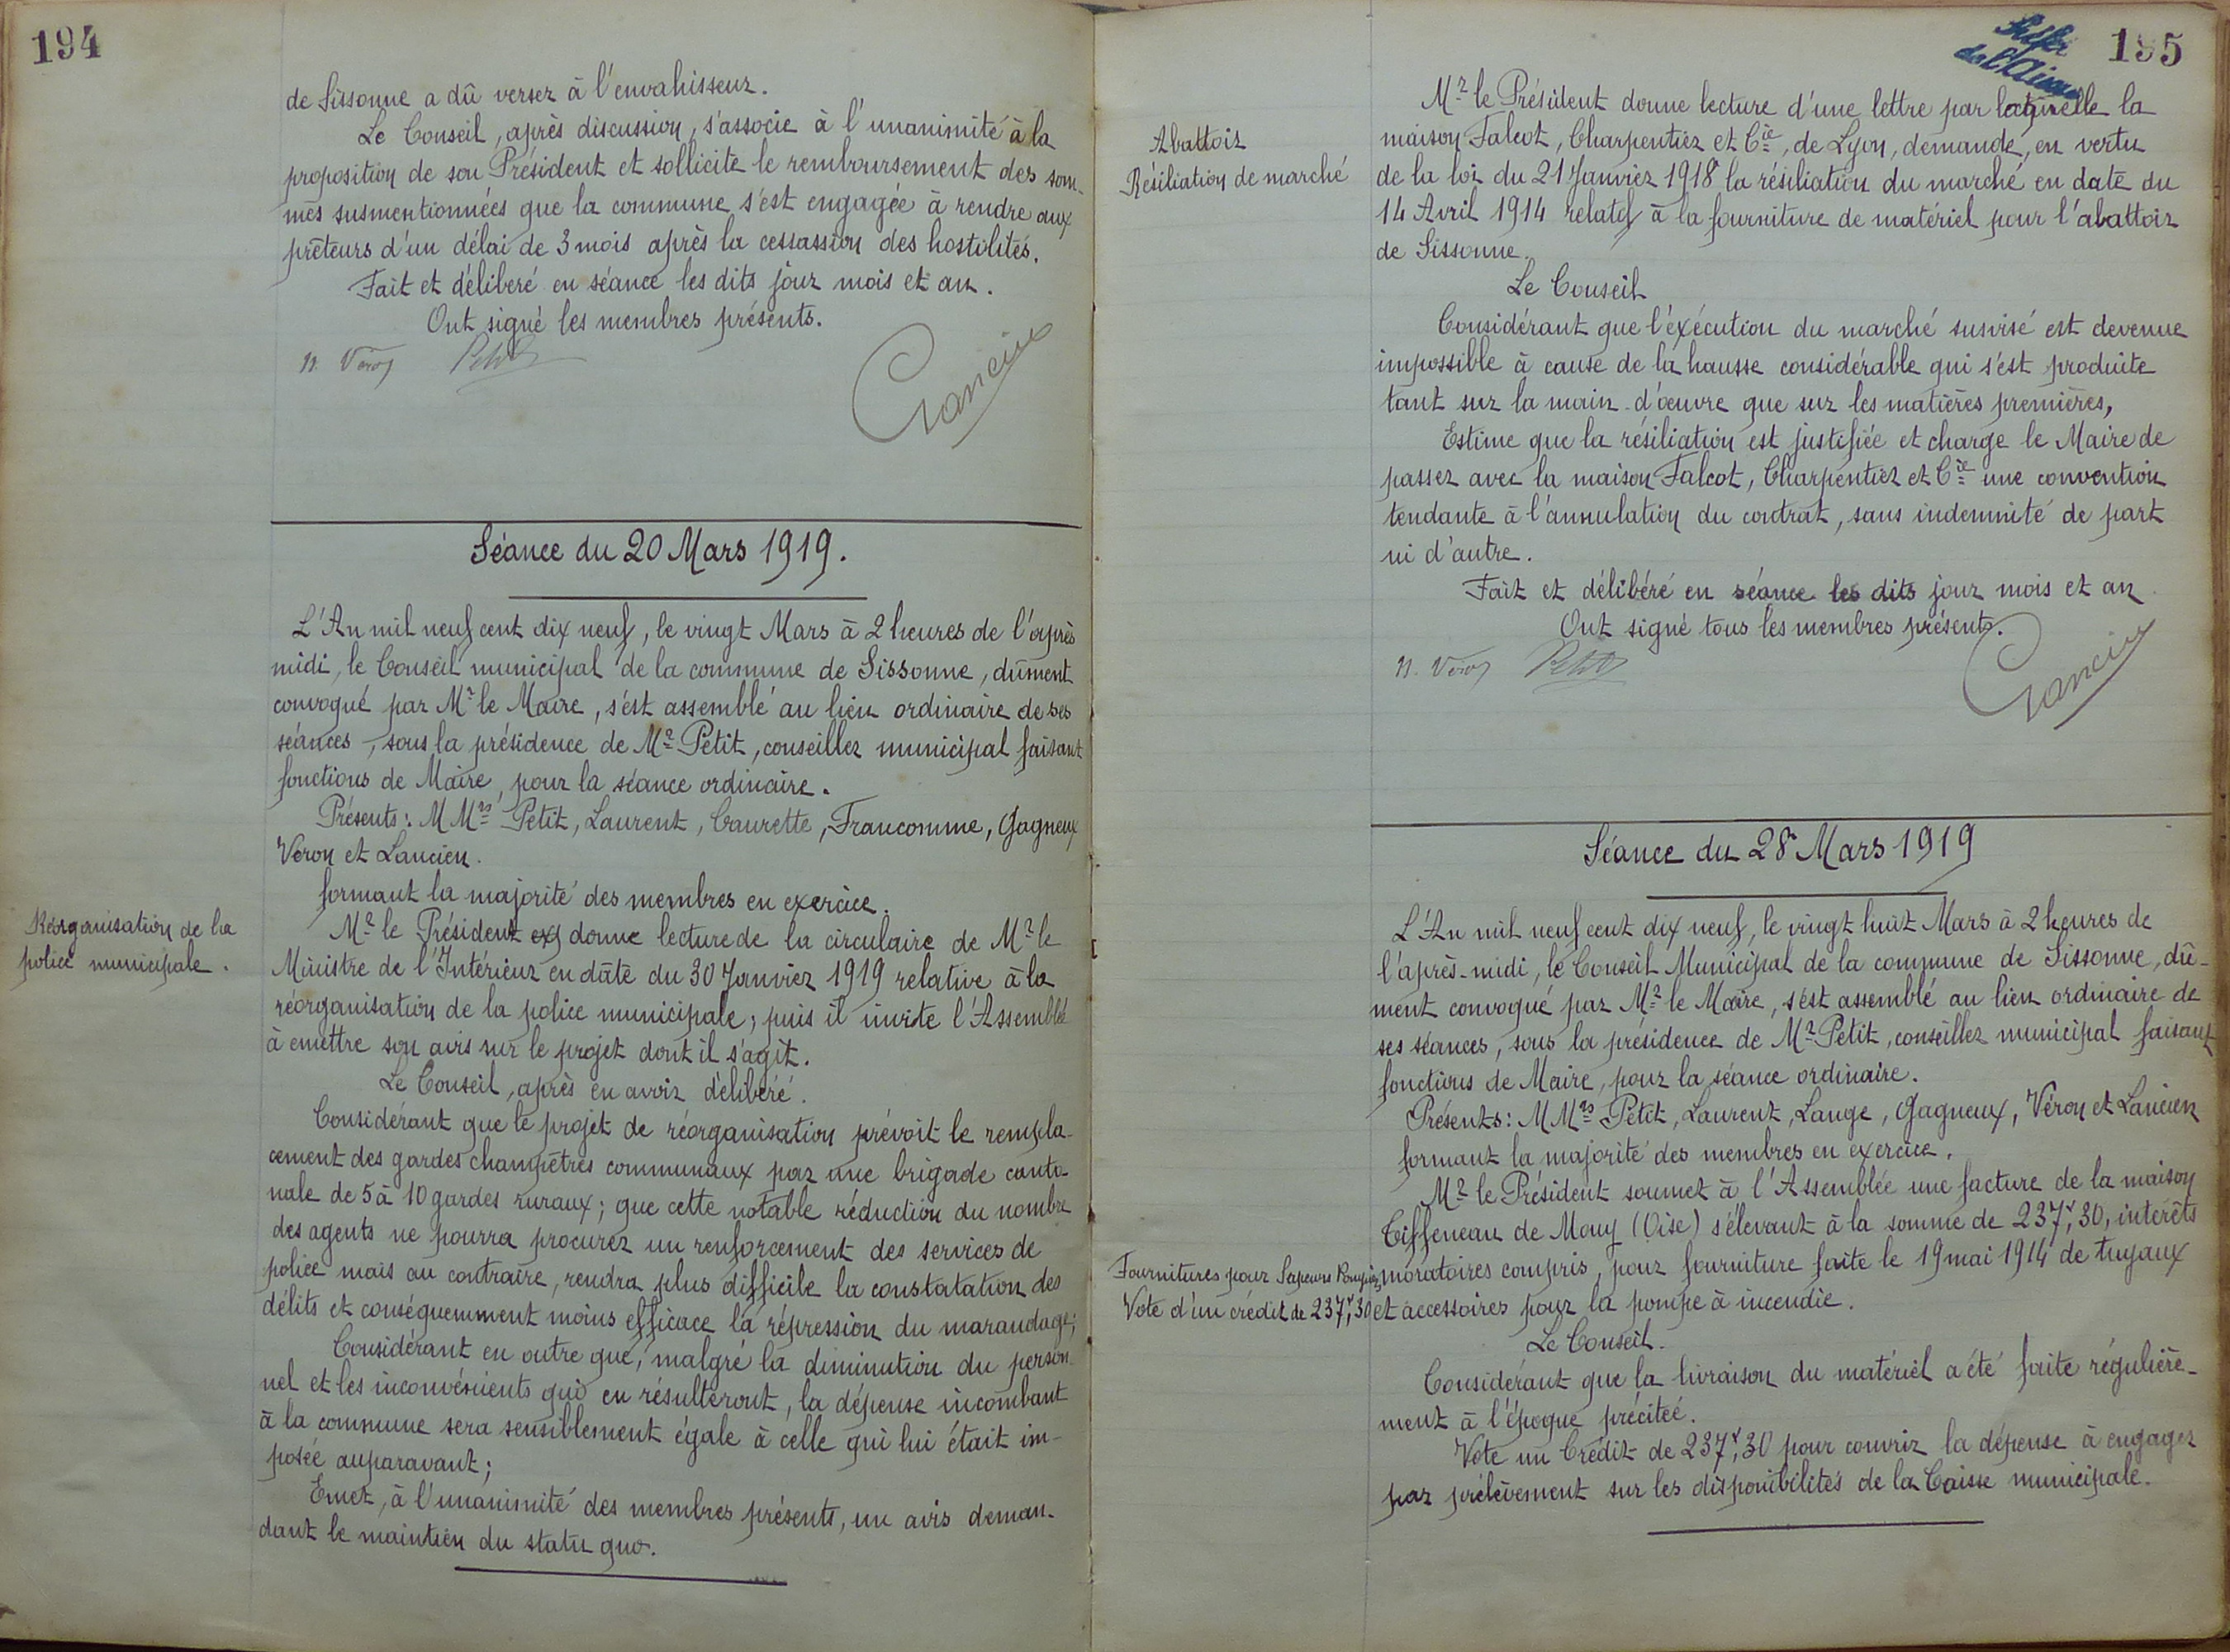 194
de Sissonne a dû verser à l'envahisseur.
Le Conseil, après discussion, s'associe à l'unanimité à la
proposition de son Président et sollicite le remboursement des som-
mes susmentionnées que la commune s'est engagée à rendre aux
prêteurs d'un délai de 3 mois après la cessassion des hostilités.
Fait et délibéré en séance les dits jour mois et an.
Ont signé les membres présents.
N. Véron Petit
Séance du 20 Mars 1919.
L'An mil neuf cent dix neuf, le vingt Mars à 2 heures de l'après
midi, le Conseil municipal de la commune de Sissonne, dûment
convoqué par Mr le Maire, s'est assemblé au lieu ordinaire de ses
séances, sous la présidence de Mr Petit, conseiller municipal faisant
fonctions de Maire, pour la séance ordinaire.
Présents: MMrs Petit, Laurent, Caurette, Francomme, Gagneux
Véron et Lancien.
formant la majorité des membres en exercice.
Réorganisation de la
police municipale.
Mr le Président donne lecture de la circulaire de Mr le
Ministre de l'Intérieur en date du 30 Janvier 1919 relative à la
réorganisation de la police municipale; puis il invite l'Assemblé
à émettre son avis sur le projet dont il s'agit.
Le Conseil, après en avoir délibéré.
Considérant que le projet de réorganisation prévoit le rempla-
cement des gardes champêtres communaux par une brigade canto-
nale de 5 à 10 gardes ruraux; que cette notable réduction du nombre
des agents ne pourra procurer un renforcement des services de
police mais au contraire, rendra plus difficile la constatation des
délits et conséquemment moins efficace la répression du maraudage;
Considérant en outre que, malgré la diminution du person-
nel et les inconvénients qui en résulteront, la dépense incombant
à la commune sera sensiblement égale à celle qui lui était im-
posée auparavant;
Emet, à l'unanimité des membres présents, un avis deman-
dant le maintien du statu quo.
195
de l'Aisne
Abattoir
Résiliation de marché
Mr le Président donne lecture d'une lettre par laquelle la
maison Falcot, Charpentier et Cie, de Lyon, demande, en vertu
de la loi du 21 Janvier 1918 la résiliation du marché en date du
14 Avril 1914 relatif à la fourniture de matériel pour l'abattoir
de Sissonne.
Le Conseil
Considérant que l'éxécution du marché susvisé est devenue
impossible à cause de la hausse considérable qui s'est produite
tant sur la main-d'œuvre que sur les matières premières,
Estime que la résiliation est justifiée et charge le Maire de
passer avec la maison Falcot, Charpentier et Cie une convention
tendante à l'annulation du contrat, sans indemnité de part
ni d'autre.
Fait et délibéré en séance les dits jour mois et an
Ont signé tous les membres présents.
N. Véron Petit
Séance du 28 Mars 1919
L'An mil neuf cent dix neuf, le vingt huit Mars à 2 heures de
l'après-midi, le Conseil Municipal de la commune de Sissonne, dû-
ment convoqué par Mr le Maire, s'est assemblé au lieu ordinaire de
ses séances, sous la présidence de Mr Petit, conseiller municipal faisant
fonctions de Maire, pour la séance ordinaire.
Présents: MMrs Petit, Laurent, Lange, Gagneux, Véron et Lancien
formant la majorité des membres en exercice.
Mr le Président soumet à l'Assemblée une facture de la maison
Tiffeneau de Mouy (Oise) s'élevant à la somme de 237f,30, intérêts
moratoires compris, pour fourniture faite le 19 mai 1914 de tuyaux
et accessoires pour la pompe à incendie.
Fournitures pour Sapeurs Pompiers
Vote d'un crédit de 237f,30
Le Conseil.
Considérant que la livraison du matériel a été faite régulière-
ment à l'époque précitée.
Vote un Crédit de 237f,30 pour couvrir la dépense à engager
par prélèvement sur les disponibilités de la Caisse municipale.